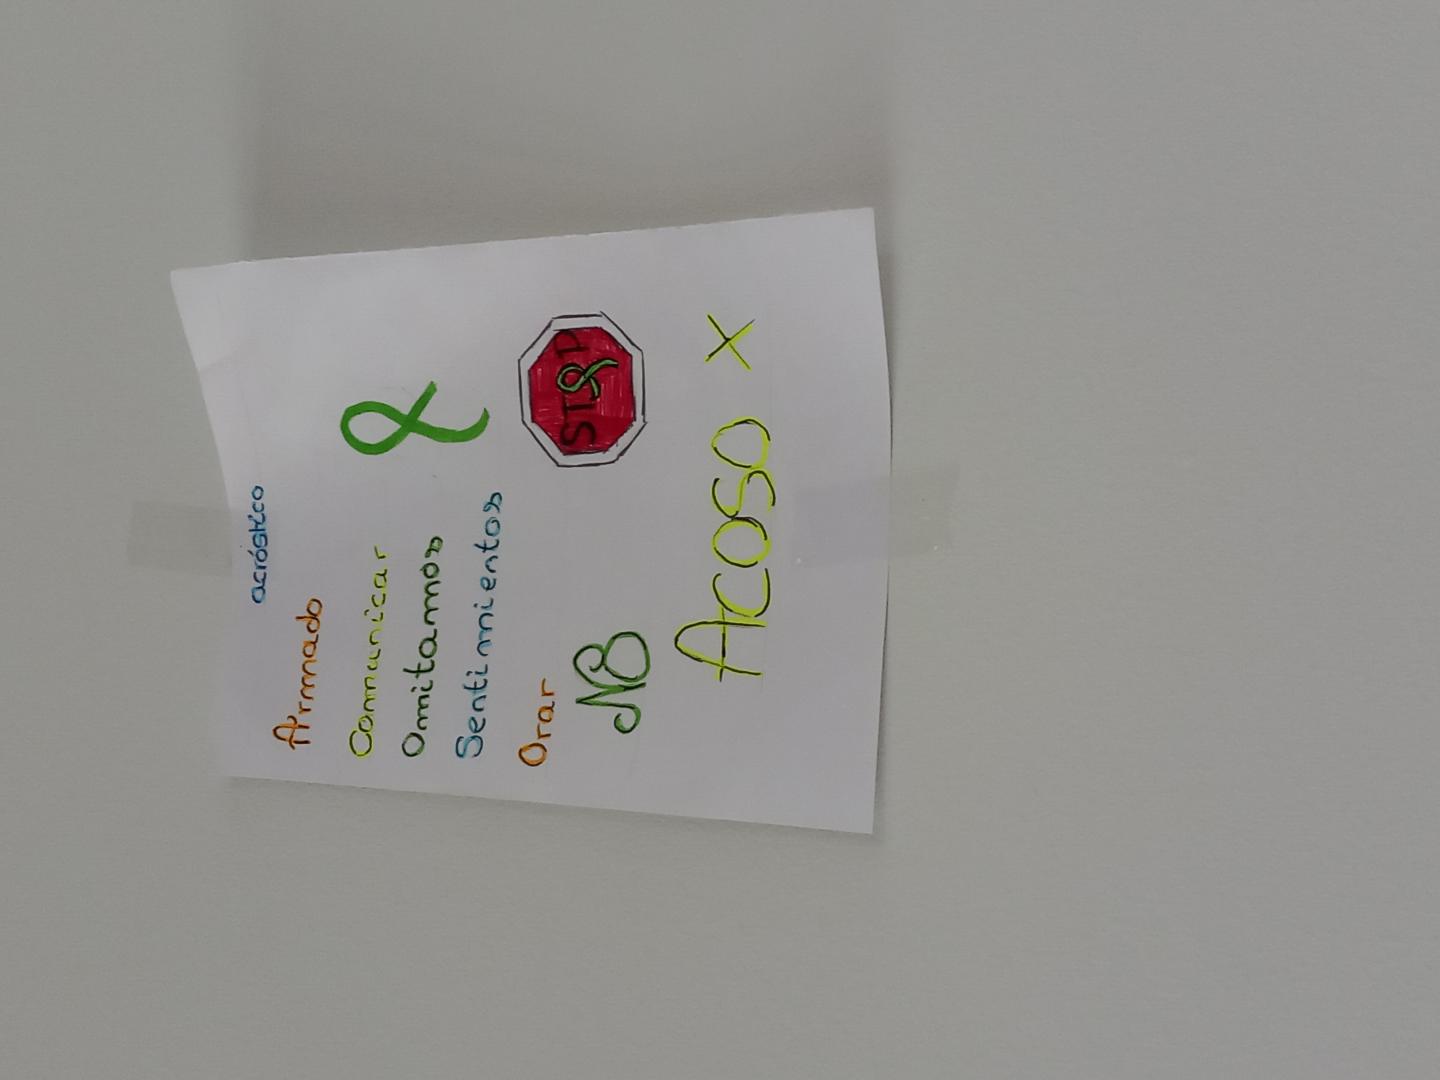 acróstico
Armado
Comunicar
Omitamos
Sentimientos
Orar
STOP
NO
ACOSO X